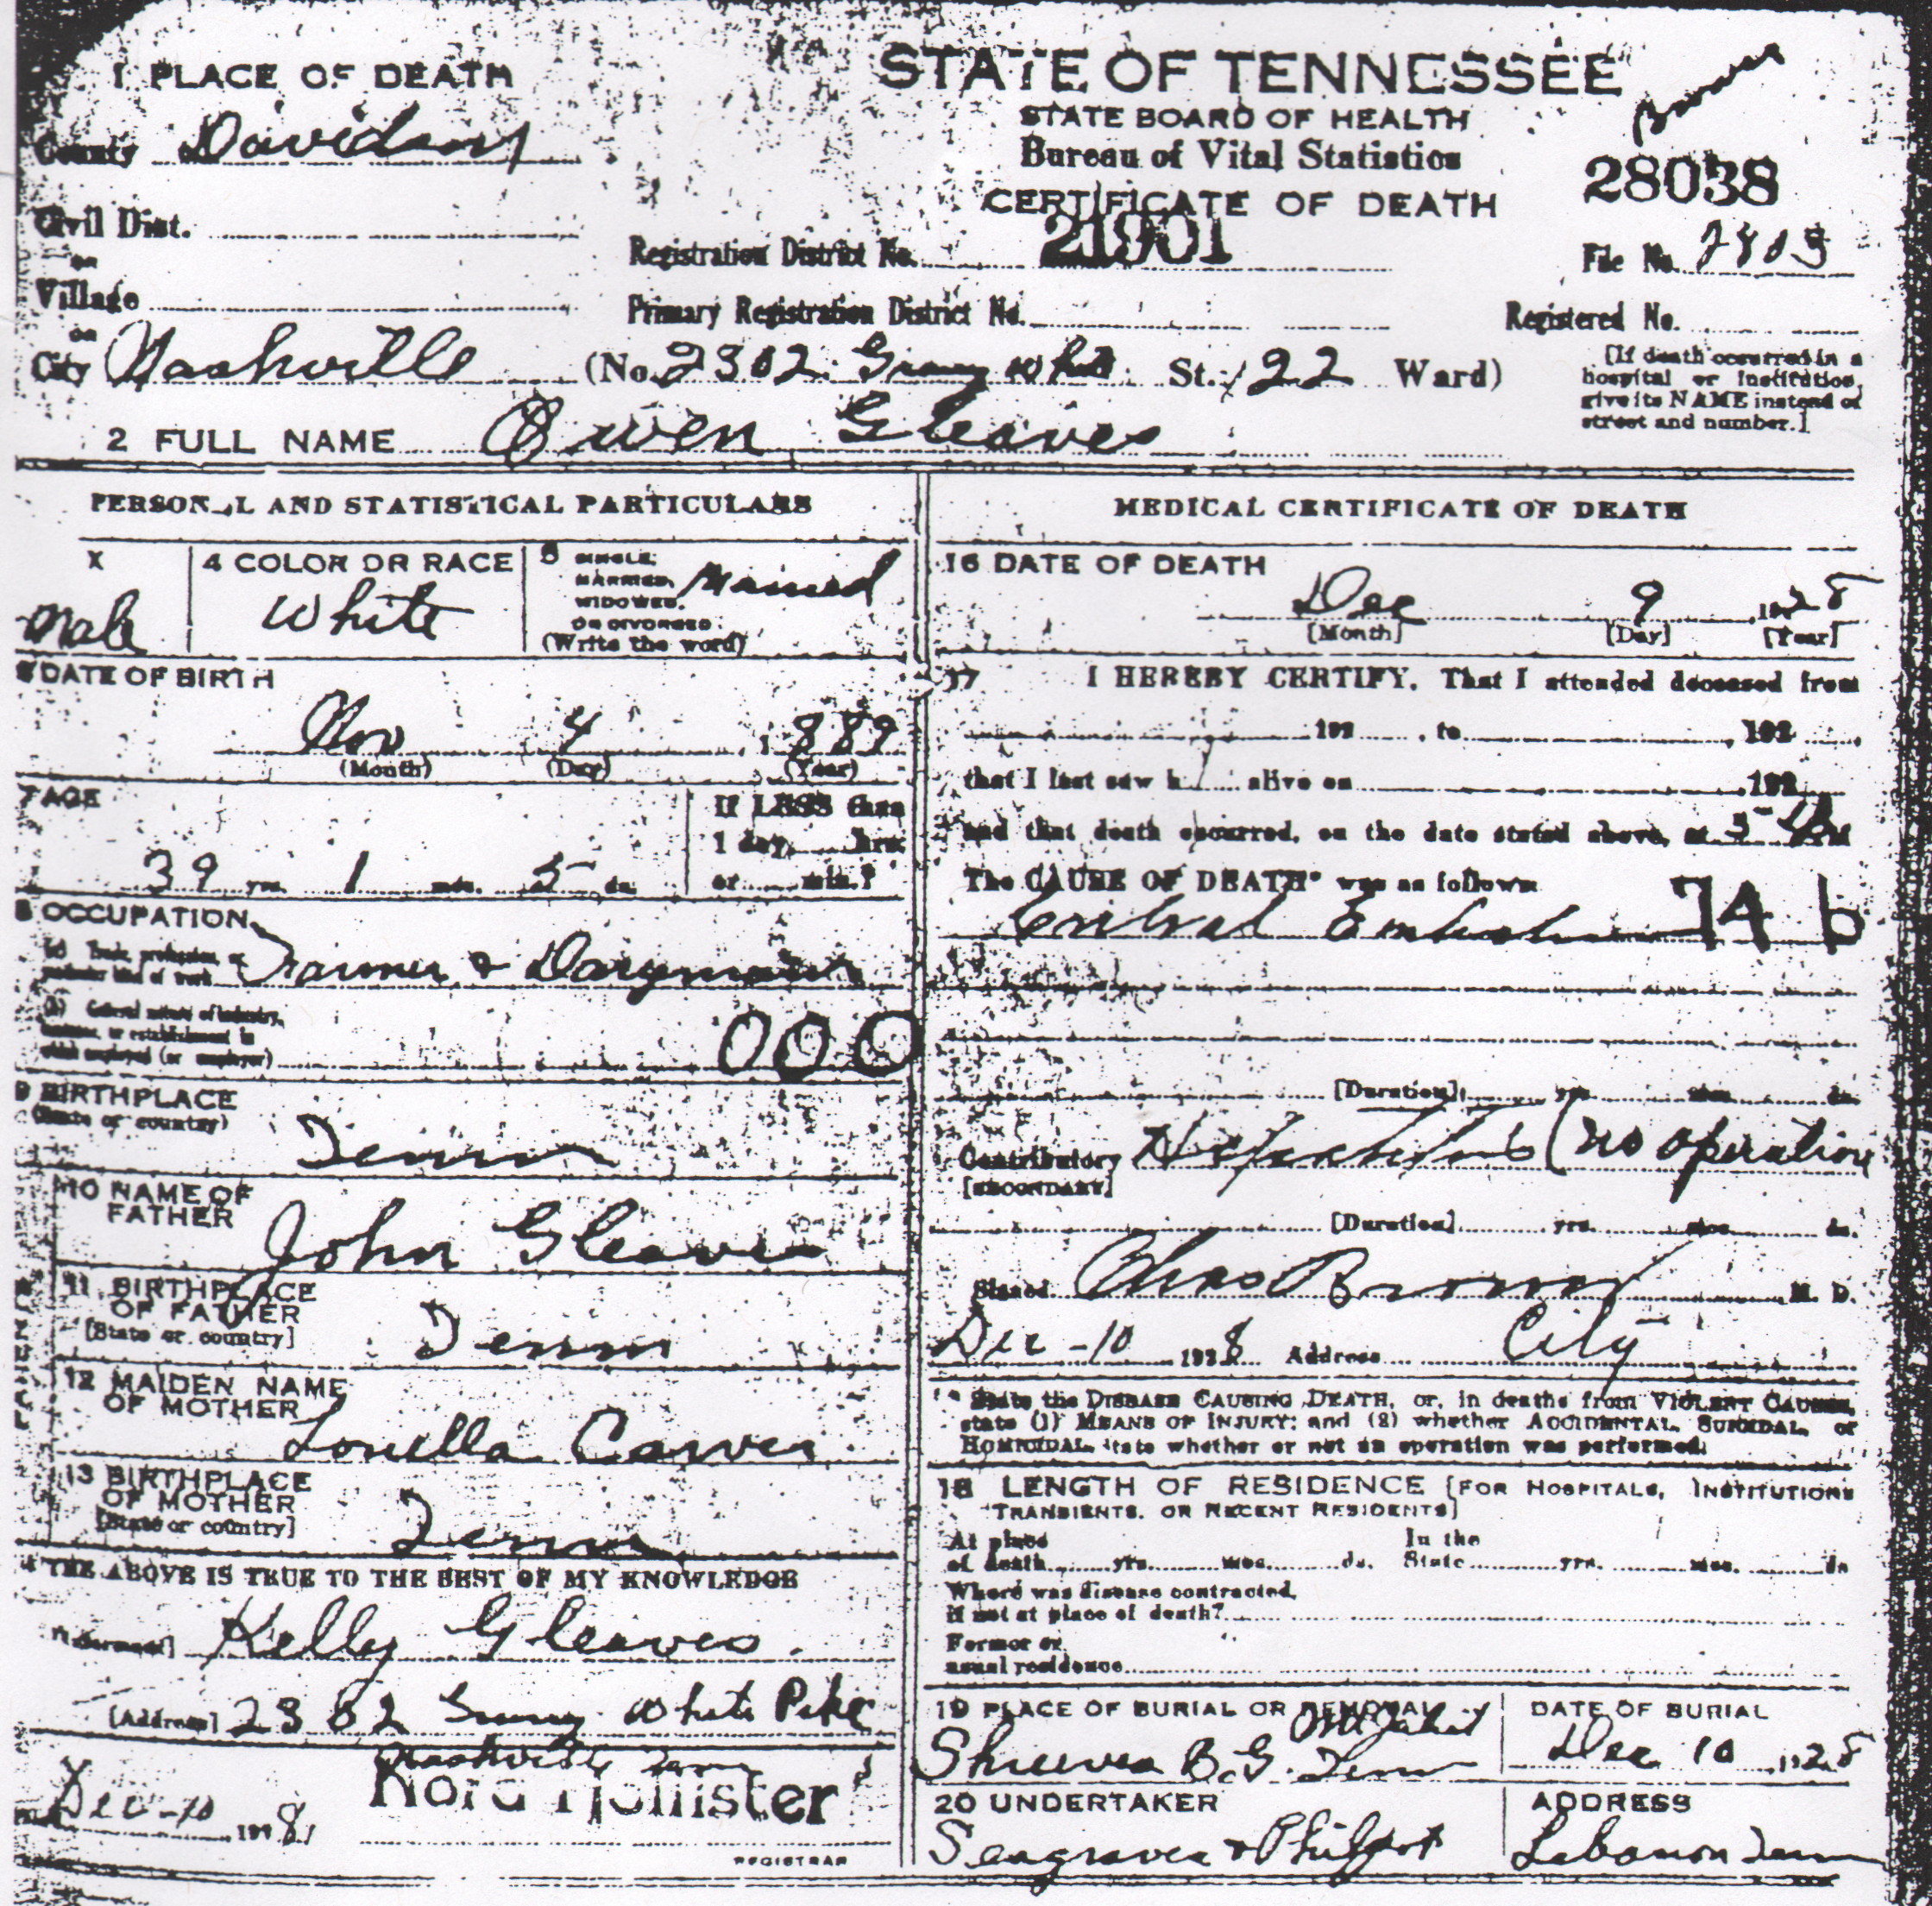 1 PLACE OF DEATH
County Davidson
Civil Dist.
or
Village
or
City Nashville (No. 2302 Granny White St.; 22 Ward)
STATE OF TENNESSEE
STATE BOARD OF HEALTH
Bureau of Vital Statistics
CERTIFICATE OF DEATH
28038
Registration District No. 21901
File No.
Primary Registration District No.
Registered No.
[If death occurred in a
hospital or institution,
give its NAME instead of
street and number.]
2 FULL NAME Owen Gleaves
PERSONAL AND STATISTICAL PARTICULARS
X
Male
4 COLOR OR RACE
White
5 SINGLE,
MARRIED,
WIDOWED,
OR DIVORCED.
(Write the word)
Married
6 DATE OF BIRTH
Nov 4, 1889
(Month) (Day) (Year)
7 AGE
39 yrs. 1 mos. 5 ds.
If LESS than
1 day, hrs.
or min.?
8 OCCUPATION
(a) Trade, profession, or
particular kind of work Farmer & Dairyman
(b) General nature of industry,
business, or establishment in
which employed (or employer)
000
9 BIRTHPLACE
(State or country)
Tenn
10 NAME OF
FATHER
John Gleaves
11 BIRTHPLACE
OF FATHER
[State or country]
Tenn
12 MAIDEN NAME
OF MOTHER
Louella Carver
13 BIRTHPLACE
OF MOTHER
[State or country]
Tenn
14 THE ABOVE IS TRUE TO THE BEST OF MY KNOWLEDGE
[Informant] Kelly Gleaves
[Address] 2302 Granny White Pike
Nashville Tenn
Dec-10 1928,
Nora Hollister
REGISTRAR
MEDICAL CERTIFICATE OF DEATH
16 DATE OF DEATH
Dec 9, 1928
[Month] [Day] [Year]
17 I HEREBY CERTIFY, That I attended deceased from
192 , to , 192 ,
that I last saw h alive on , 192
and that death occurred, on the date stated above, at
The CAUSE OF DEATH* was as follows
Cerebral Embolism 74 b
[Duration] yrs. mos. ds.
Contributory (no operation
[SECONDARY]
[Duration] yrs. mos. ds.
Signed Chas Brower M. D.
Dec -10 1928 Address City
* State the DISEASE CAUSING DEATH, or, in deaths from VIOLENT CAUSES,
state (1) MEANS OF INJURY; and (2) whether ACCIDENTAL, SUICIDAL, or
HOMICIDAL, state whether or not an operation was performed.
18 LENGTH OF RESIDENCE [FOR HOSPITALS, INSTITUTIONS
TRANSIENTS, OR RECENT RESIDENTS]
At place
of death yrs. mos. ds.
In the
State yrs. mos. ds
Where was disease contracted,
if not at place of death?
Former or
usual residence
19 PLACE OF BURIAL OR REMOVAL
Mt Juliet
B.G. Tenn
DATE OF BURIAL
Dec 10, 1928
20 UNDERTAKER
Seagraves & Philpot
ADDRESS
Lebanon Tenn